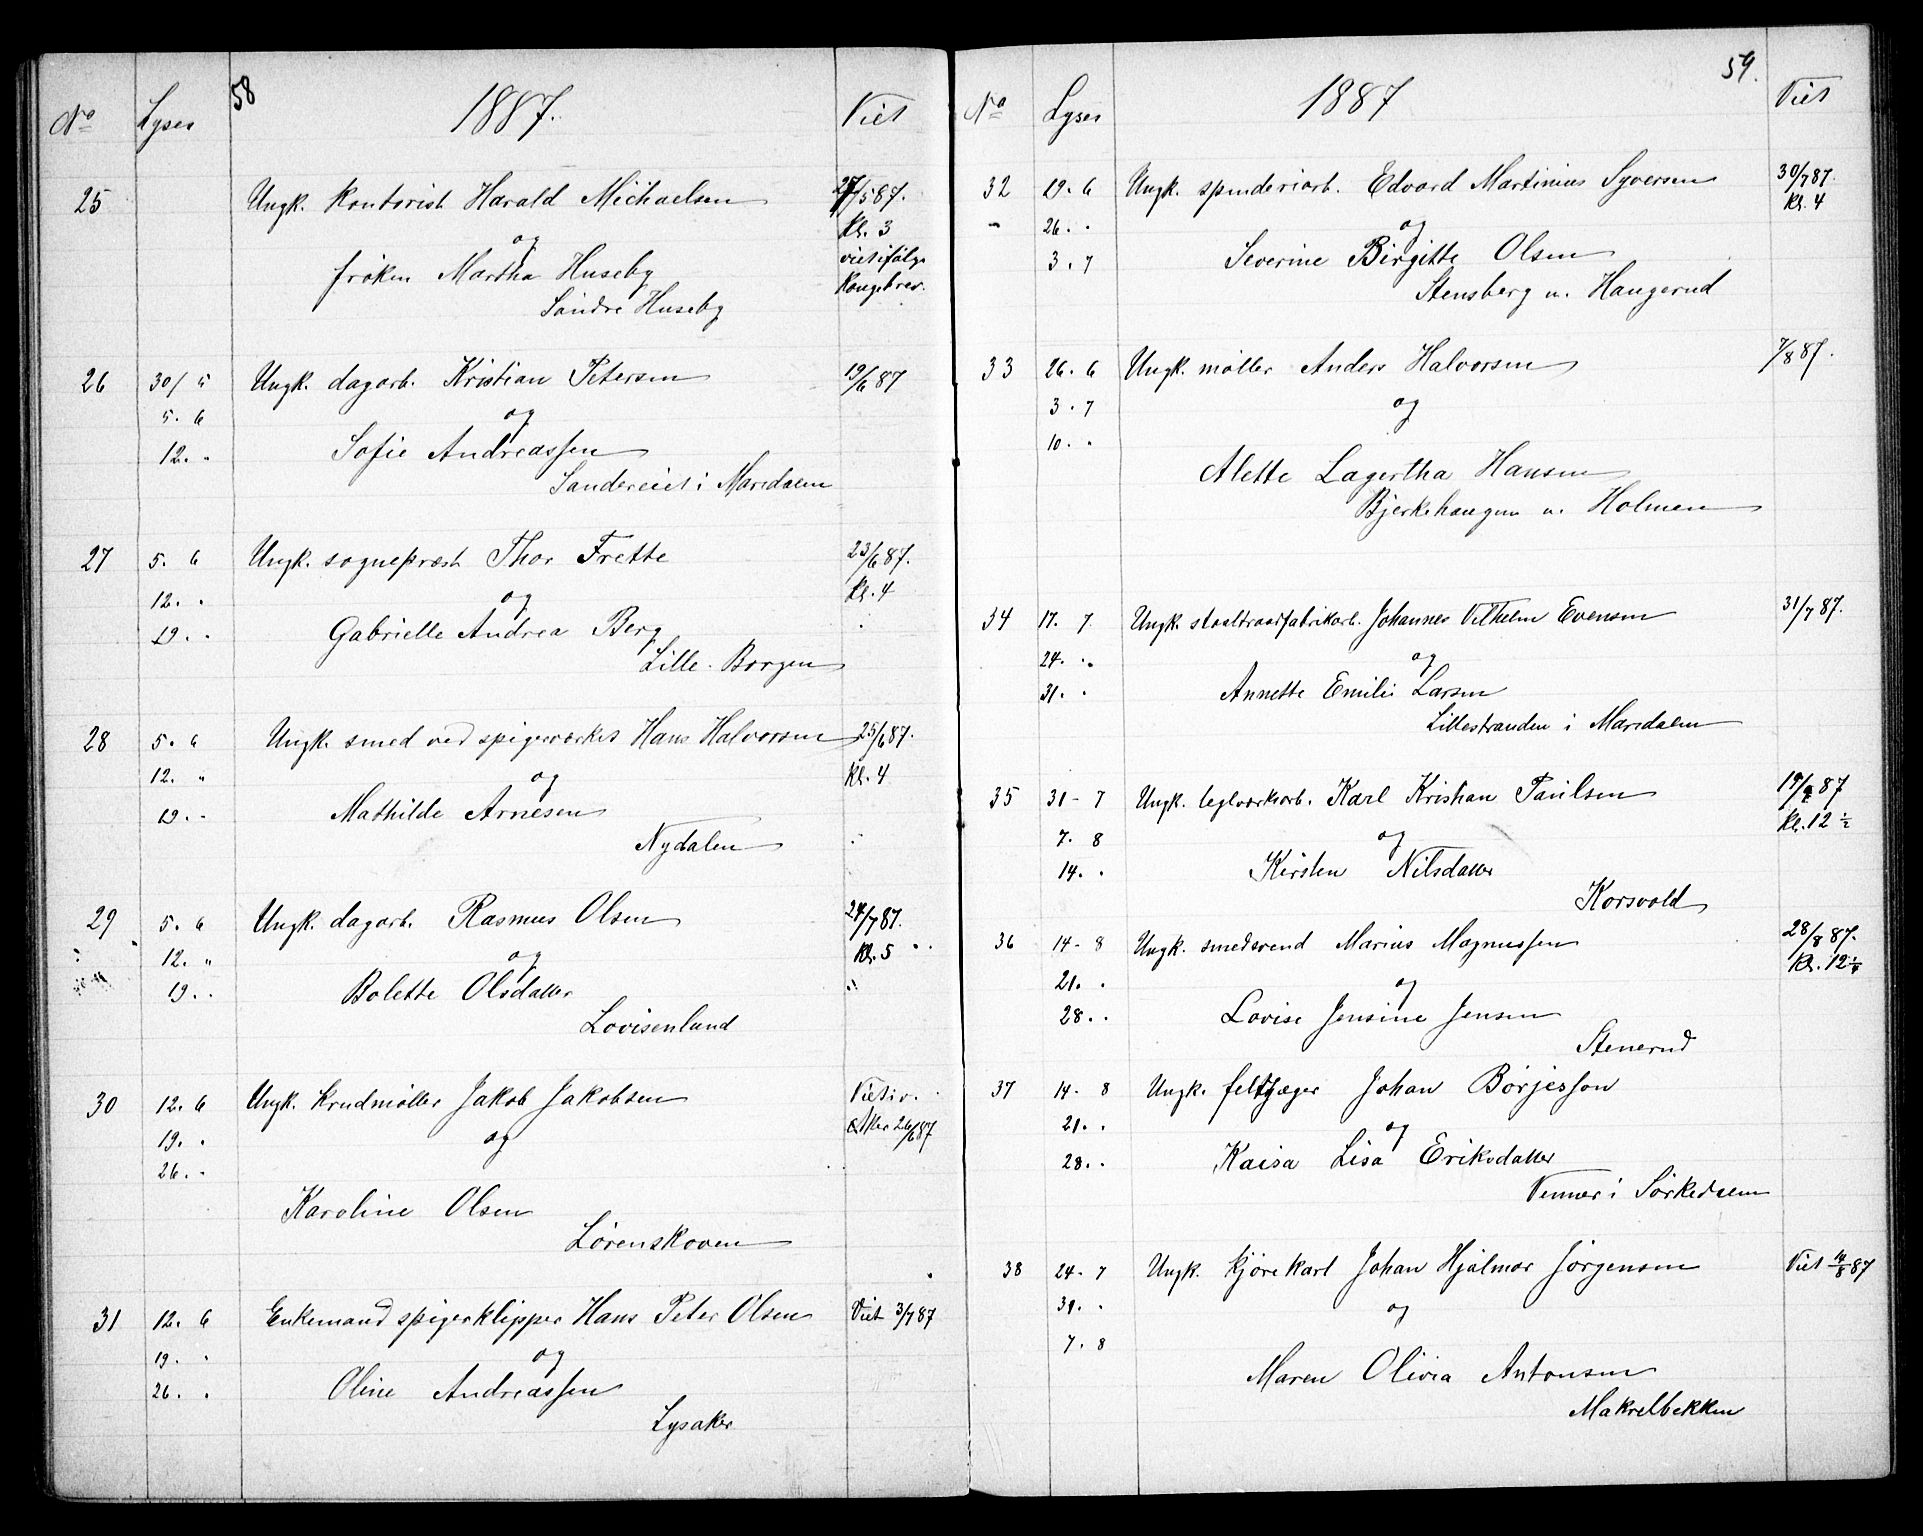 58
No Lyses 1887. Viet
25 Ungk. kontorist Harald Michaelsen 27/5 87.
og Kl. 3
frøken Martha Huseby viet ifølge
Søndre Huseby Kongebrev.
26 30/5 Ungk. dagarb. Kristian Petersen 19/6 87
5. 6 og
12. " Sofie Andreassen
Sandereiet i Maridalen
27 5. 6 Ungk. sogneprest Thor Frette 23/6 87.
12. " og Kl. 4
19. " Gabrielle Andrea Berg
Lille-Borgen
28 5. 6 Ungk. smed ved spigerverket Hans Halvorsen 25/6 87.
12. " og Kl. 4
19. " Mathilde Arnesen
Nydalen
29 5. 6 Ungk. dagarb. Rasmus Olsen 24/7 87.
12. " og Kl. 5
19. " Bolette Olsdatter
Lovisenlund
30 12. 6 Ungk. Krudmøller Jakob Jakobsen Viet i v.
19. " og Aker 26/6 87
26. "
Karoline Olsen
Lørenskoven
31 12. 6 Enkemand spigerklipper Hans Peter Olsen Viet 3/7 87
19. " og
26. " Oline Andreassen
Lysaker
59.
No Lyses 1887 Viet
32 19. 6 Ungk. spinderiarb. Edvard Martinius Syversen 30/7 87.
" 26. " og Kl. 4
3. 7 Severine Birgitte Olsen
Stensberg u. Haugerud
33 26. 6 Ungk. møller Anders Halvorsen 7/8 87.
3. 7 og
10. "
Alette Lagertha Hansen
Bjerkehaugen u. Holmen
34 17. 7. Ungk. staaltraadfabrikarb. Johannes Vilhelm Evensen 31/7 87.
24. " og
31. " Annette Emilie Larsen
Lillestranden i Maridalen
35 31-7 Ungk. teglverksarb. Karl Kristian Paulsen 87
7. 8 og Kl. 12 1/2
14. " Kirsten Nilsdatter
Korsvold
36 14-8 Ungk. smedsvend Marius Magnussen 28/8 87.
21. " og Kl. 12 1/4
28. " Lovise Jensine Jensen
Stenerud
37 14-8 Ungk. feltjæger Johan Börjesson
21. " og
28. " Kaisa Lisa Eriksdatter
Venner i Sørkedalen
38 24-7 Ungk. kjørekarl Johan Hjalmar Jørgensen Viet 14/8 87
31. " og
7. 8
Maren Olivia Antonsen
Makrelbekken